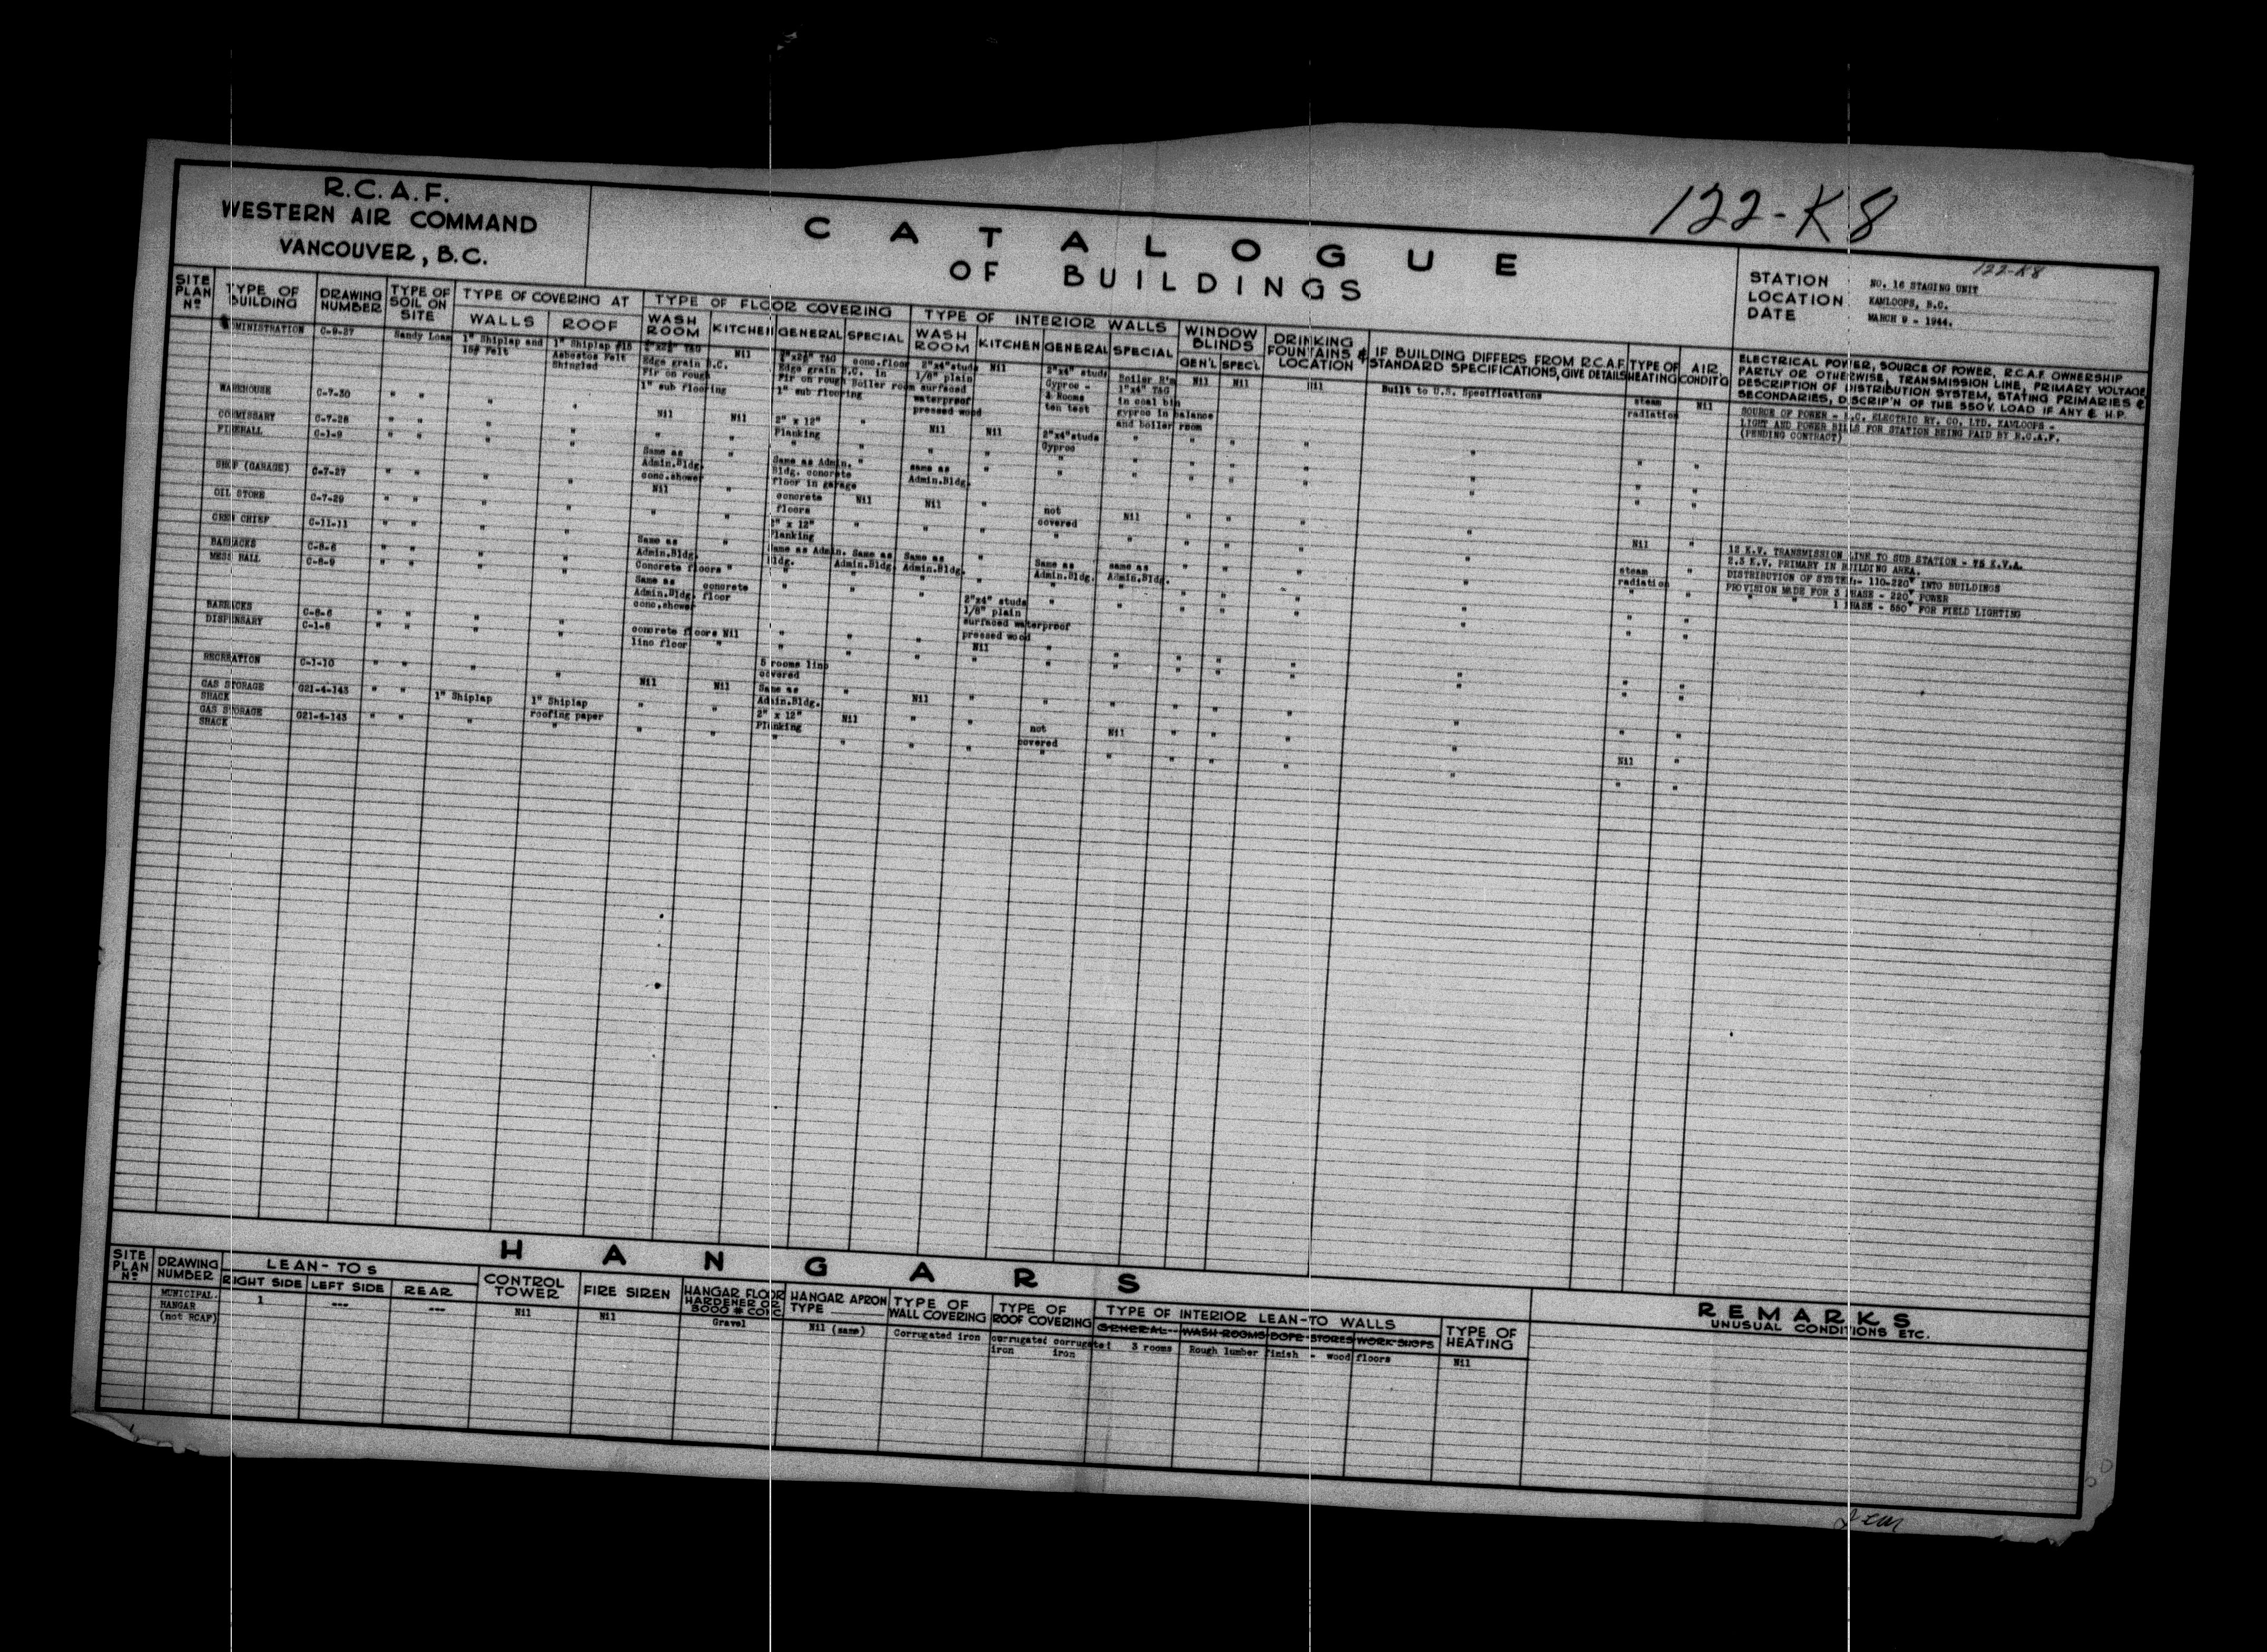 122-K8
R.C.A.F.
WESTERN AIR COMMAND
VANCOUVER, B.C.
CATALOGUE
OF BUILDINGS
122-K8
STATION NO. 16 STAGING UNIT
LOCATION KAMLOOPS, B.C.
DATE MARCH 9 - 1944.
SITE PLAN Nº
TYPE OF BUILDING
DRAWING NUMBER
TYPE OF SOIL ON SITE
TYPE OF COVERING AT
WALLS ROOF
TYPE OF FLOOR COVERING
WASH ROOM KITCHEN GENERAL SPECIAL
TYPE OF INTERIOR WALLS
WASH ROOM KITCHEN GENERAL SPECIAL
WINDOW BLINDS
GEN'L SPEC'L
DRINKING FOUNTAINS & LOCATION
IF BUILDING DIFFERS FROM R.C.A.F. STANDARD SPECIFICATIONS, GIVE DETAILS
TYPE OF HEATING
AIR CONDIT'G
ELECTRICAL POWER, SOURCE OF POWER, R.C.A.F. OWNERSHIP
PARTLY OR OTHERWISE, TRANSMISSION LINE, PRIMARY VOLTAGE
DESCRIPTION OF DISTRIBUTION SYSTEM, STATING PRIMARIES &
SECONDARIES, DISCRIP'N OF THE 550 V. LOAD IF ANY & H.P.
ADMINISTRATION C-9-27 Sandy Loam 1" Shiplap and 15# Felt 1" Shiplap #15 Asbestos Felt Shingled
Edge grain B.C. Fir on rough 1" sub flooring Nil
Edge grain B.C. Fir on rough 1" sub flooring
conc.floor in Boiler room
2"x4"studs 1/8" plain surfaced waterproof pressed wood Nil
2"x4" studs Gyproc - 3 Rooms ten test
Boiler R'm 1"x4" T&G in coal bin gyproc in balance and boiler room
Nil Nil Nil Built to U.S. Specifications steam radiation Nil
SOURCE OF POWER - B.C. ELECTRIC RY. CO. LTD. KAMLOOPS -
LIGHT AND POWER BILLS FOR STATION BEING PAID BY R.C.A.F.
(PENDING CONTRACT)
WAREHOUSE C-7-30 " " " " Nil Nil 2" x 12" Planking " Nil Nil 2"x4"studs Gyproc " " " " " " "
COMMISSARY C-7-28 " " " " " " " " " " " " " " " " " "
FIREHALL C-1-9 " " " " Same as Admin.Bldg. conc.shower " Same as Admin. Bldg. concrete floor in garage " same as Admin.Bldg. " " " " " " " " "
SHOP (GARAGE) C-7-27 " " " " Nil " concrete floors Nil Nil " not covered Nil " " " " Nil "
OIL STORE C-7-29 " " " " " " 2" x 12" Planking " " " " " " " " "
CREW CHIEF C-11-11 " " " " Same as Admin.Bldg. " Same as Admin. Bldg. Same as Admin.Bldg. Same as Admin.Bldg. " Same as Admin.Bldg. same as Admin.Bldg. " " " " steam radiation "
12 K.V. TRANSMISSION LINE TO SUB STATION - 75 K.V.A.
2.3 K.V. PRIMARY IN BUILDING AREA.
DISTRIBUTION OF SYSTEM- 110-220V INTO BUILDINGS
PROVISION MADE FOR 3 PHASE - 220V POWER
" " 1 PHASE - 550V FOR FIELD LIGHTING
BARRACKS C-8-6 " " " " Concrete floors " " " " " " " " " " " " "
MESS HALL C-8-9 " " " " Same as Admin.Bldg. conc.shower concrete floor " " " 2"x4" studs 1/8" plain surfaced waterproof pressed wood " " " " " " " "
BARRACKS C-8-6 " " " " concrete floors Nil " " " Nil " " " " " " " "
DISPENSARY C-1-8 " " " " lino floor " 5 rooms lino covered " " " " " " " " " " "
RECREATION C-1-10 " " " " Nil Nil Same as Admin.Bldg. " Nil " " " " " " " " "
GAS STORAGE SHACK G21-4-143 " " 1" Shiplap 1" Shiplap roofing paper " " 2" x 12" Planking Nil " " not covered Nil " " " " Nil "
GAS STORAGE SHACK G21-4-143 " " " " " " " " " " " " " " " " " "
HANGARS
SITE PLAN Nº
DRAWING NUMBER
LEAN-TOS
RIGHT SIDE LEFT SIDE REAR
CONTROL TOWER
FIRE SIREN
HANGAR FLOOR HARDENER OR 3000 # CONC
HANGAR APRON TYPE
TYPE OF WALL COVERING
TYPE OF ROOF COVERING
TYPE OF INTERIOR LEAN-TO WALLS
GENERAL WASH ROOMS DOPE STORES WORK SHOPS
TYPE OF HEATING
REMARKS
UNUSUAL CONDITIONS ETC.
MUNICIPAL. HANGAR (not RCAF) 1 --- --- Nil Nil Gravel Nil (same) Corrugated iron corrugated iron corrugated iron 3 rooms Rough lumber finish - wood floors Nil